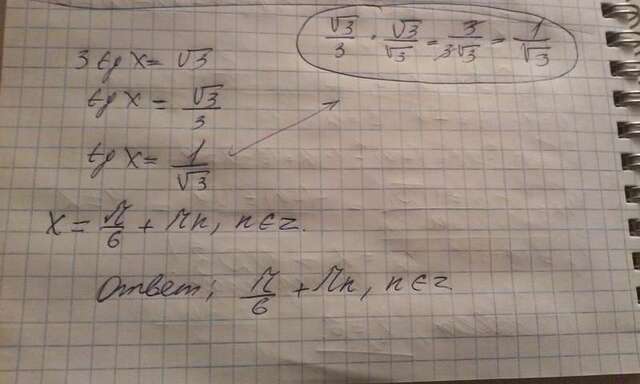 √3/3 · √3/√3 = 3/3√3 = 1/√3
3 tg x = √3
tg x = √3/3
tg x = 1/√3
x = π/6 + πn, n∈z.
Ответ: π/6 + πn, n∈z